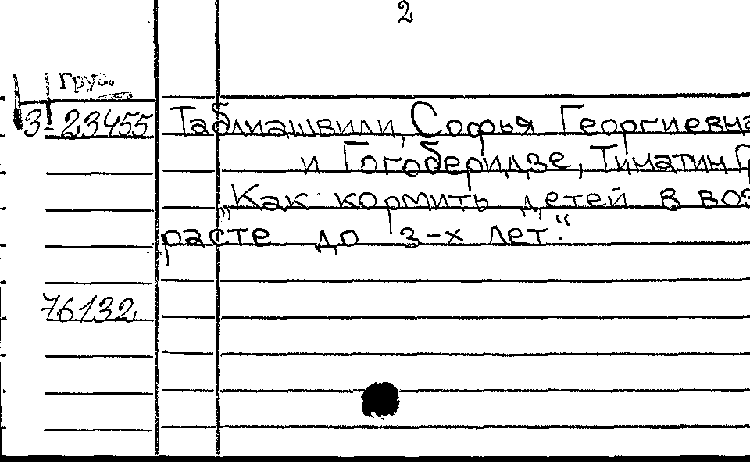 2
Груз.
3-23455 Таблиашвили, Софья Георгиевна
и Гогоберидзе, Тиматин Г
„Как кормить детей в воз
расте до 3-х лет."
76132